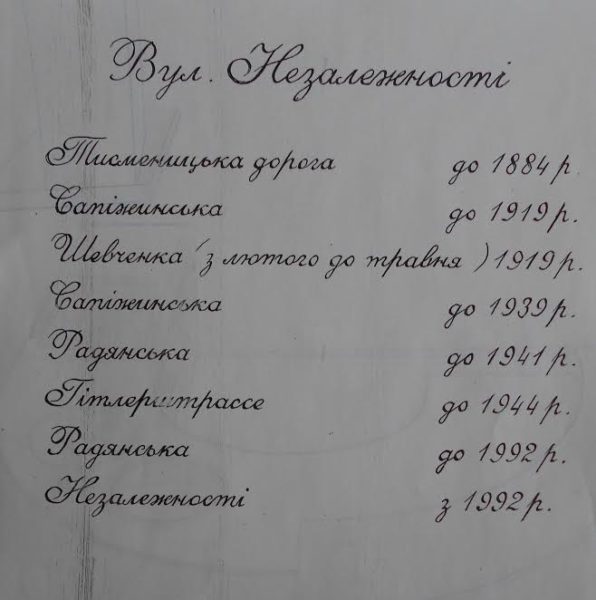 Вул. Незалежності
Тисменицька дорога до 1884 р.
Сапіжинська до 1919 р.
Шевченка (з лютого до травня) 1919 р.
Сапіжинська до 1939 р.
Радянська до 1941 р.
Гітлерштрассе до 1944 р.
Радянська до 1992 р.
Незалежності з 1992 р.